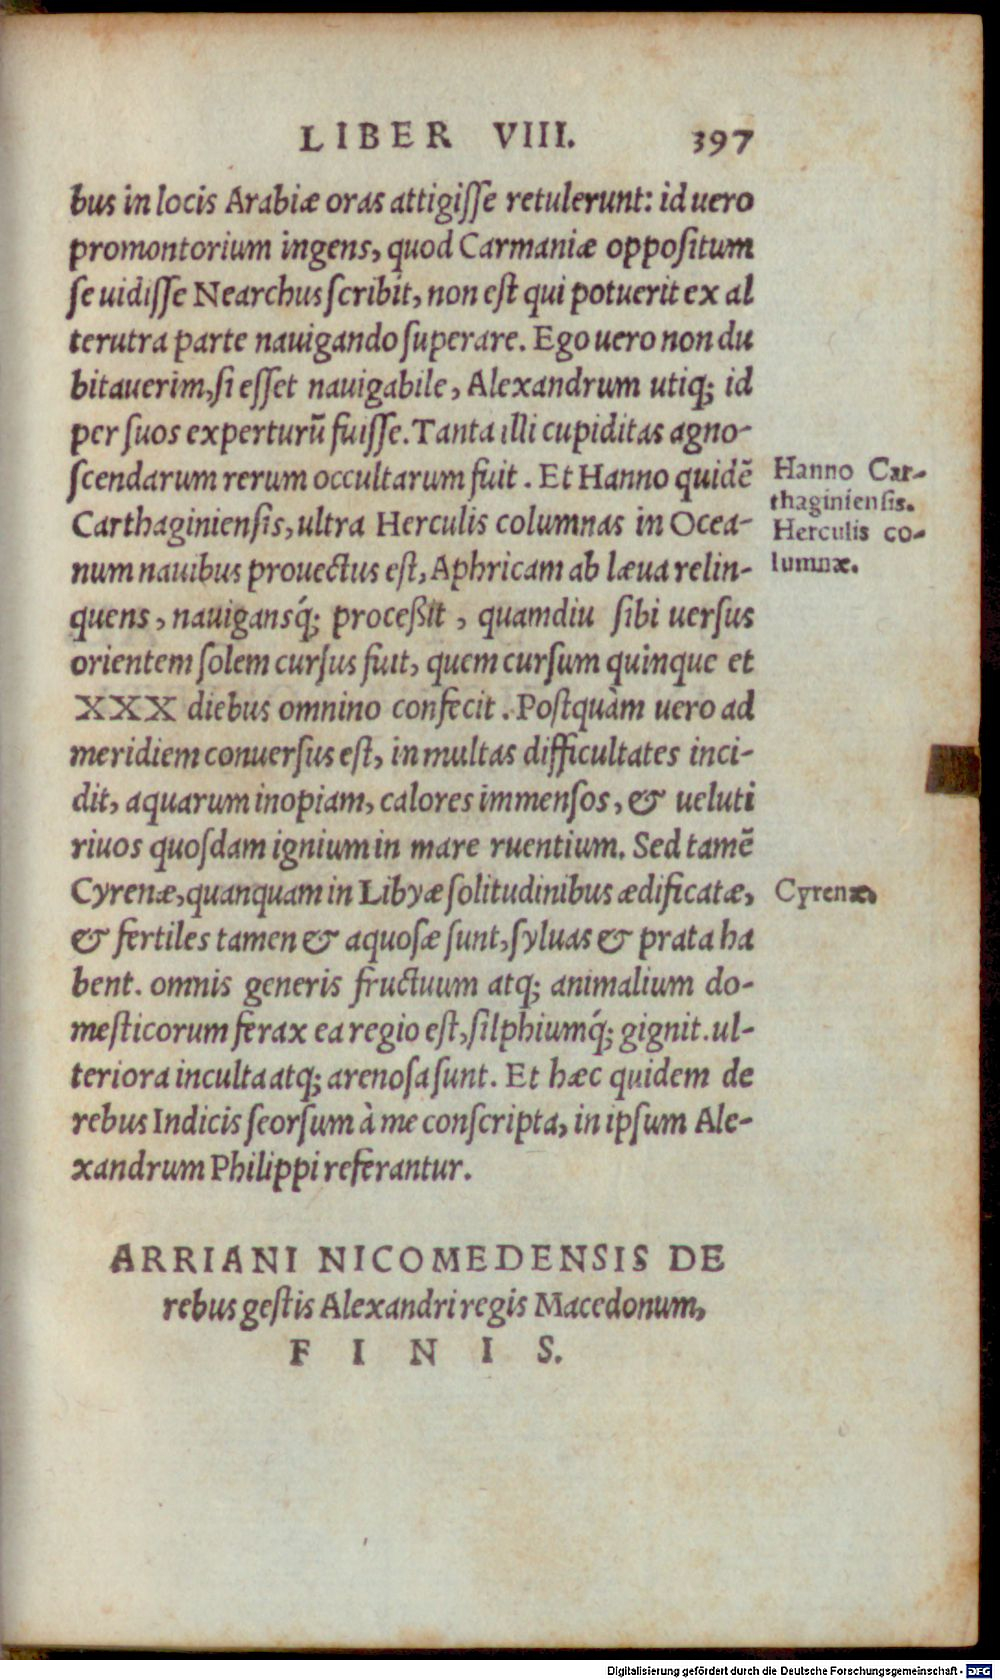 LIBER VIII. 397
bus in locis Arabiæ oras attigiſſe retulerunt: id uero
promontorium ingens, quod Carmaniæ oppoſitum
ſe uidiſſe Nearchus ſcribit, non eſt qui potuerit ex al
terutra parte nauigando ſuperare. Ego uero non du
bitauerim, ſi eſſet nauigabile, Alexandrum utiq; id
per ſuos experturū fuiſſe. Tanta illi cupiditas agno-
ſcendarum rerum occultarum fuit. Et Hanno quidē
Hanno Car-
Carthaginienſis, ultra Herculis columnas in Ocea-
thaginienſis.
Herculis co-
num nauibus prouectus eſt, Aphricam ab læua relin-
lumnæ.
quens, nauigansq́; proceßit, quamdiu ſibi uerſus
orientem ſolem curſus fuit, quem curſum quinque et
XXX diebus omnino confecit. Poſtquàm uero ad
meridiem conuerſus eſt, in multas difficultates inci-
dit, aquarum inopiam, calores immenſos, & ueluti
riuos quoſdam ignium in mare ruentium. Sed tamē
Cyrenæ, quanquam in Libyæ ſolitudinibus ædificatæ,
Cyrenæ.
& fertiles tamen & aquoſæ ſunt, ſyluas & prata ha
bent. omnis generis fructuum atq; animalium do-
meſticorum ferax ea regio eſt, ſilphiumq́; gignit. ul-
teriora inculta atq; arenoſa ſunt. Et hæc quidem de
rebus Indicis ſeorſum à me conſcripta, in ipſum Ale-
xandrum Philippi referantur.
ARRIANI NICOMEDENSIS DE
rebus geſtis Alexandri regis Macedonum,
F I N I S.
Digitalisierung gefördert durch die Deutsche Forschungsgemeinschaft - DFG